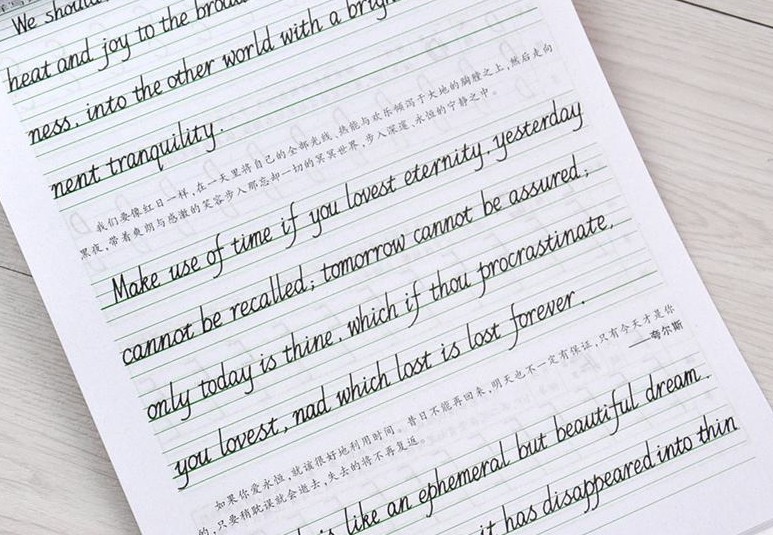 We should
heat and joy to the broad
ness, into the other world with a bright
nent tranquility.
我们要像红日一样,在一天里将自己的全部光线、热能与欢乐倾泻于大地的胸膛之上,然后走向
黑夜,带着爽朗与感激的笑容步入那忘却一切的冥冥世界,步入深邃、永恒的宁静之中。
Make use of time if you lovest eternity, yesterday
cannot be recalled; tomorrow cannot be assured;
only today is thine, which if thou procrastinate,
you lovest, nad which lost is lost forever.
如果你爱永恒,就该很好地利用时间。昔日不能再回来,明天也不一定有保证,只有今天才是你
的,只要稍耽误就会逝去,失去的将不再复返。
——夸尔斯
is like an ephemeral but beautiful dream.
it has disappeared into thin